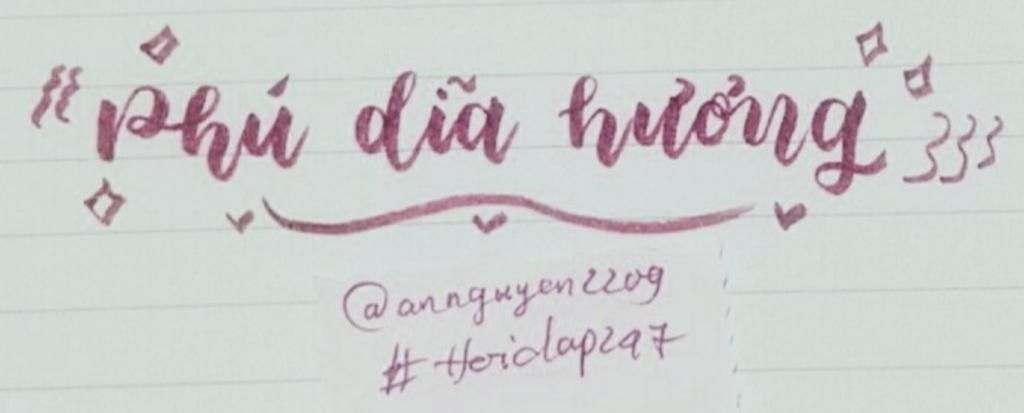 phú dĩa hưởng
@annguyen2209
#Hoidap247